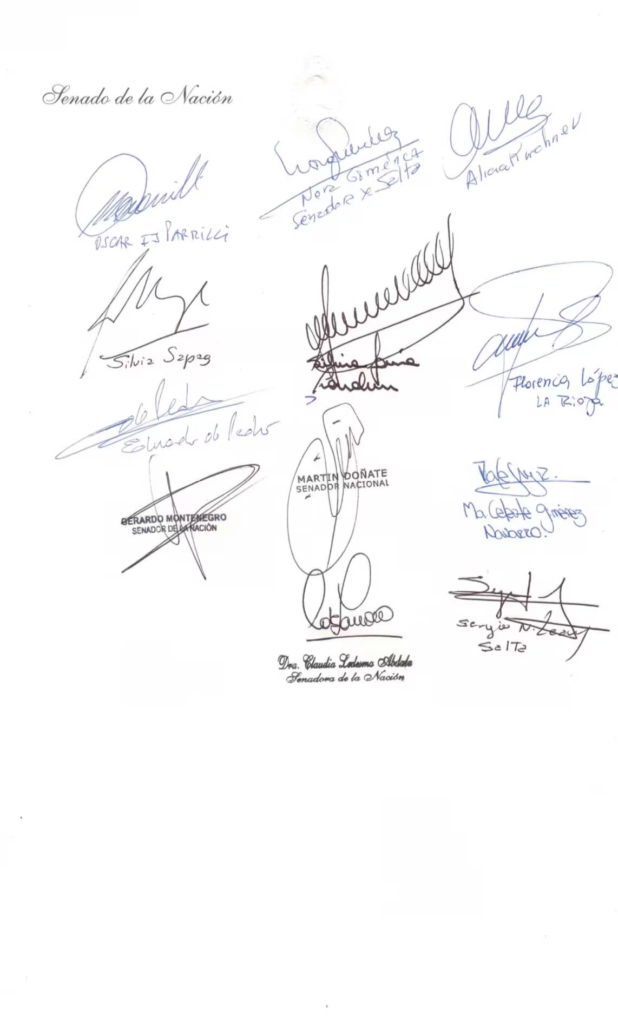 Senado de la Nación
OSCAR ISJ PARRILLI
Nora Giménez
Senadora x Salta
Alicia Kirchner
Silvia Sapag
Florencia López
LA RIOJA
de Pedro
Eduardo de Pedro
GERARDO MONTENEGRO
SENADOR DE LA NACIÓN
MARTIN DOÑATE
SENADOR NACIONAL
Ma. Celeste Giménez
Navarro
Sergio N. Leavy
Salta
Dra. Claudia Ledesma Abdala
Senadora de la Nación